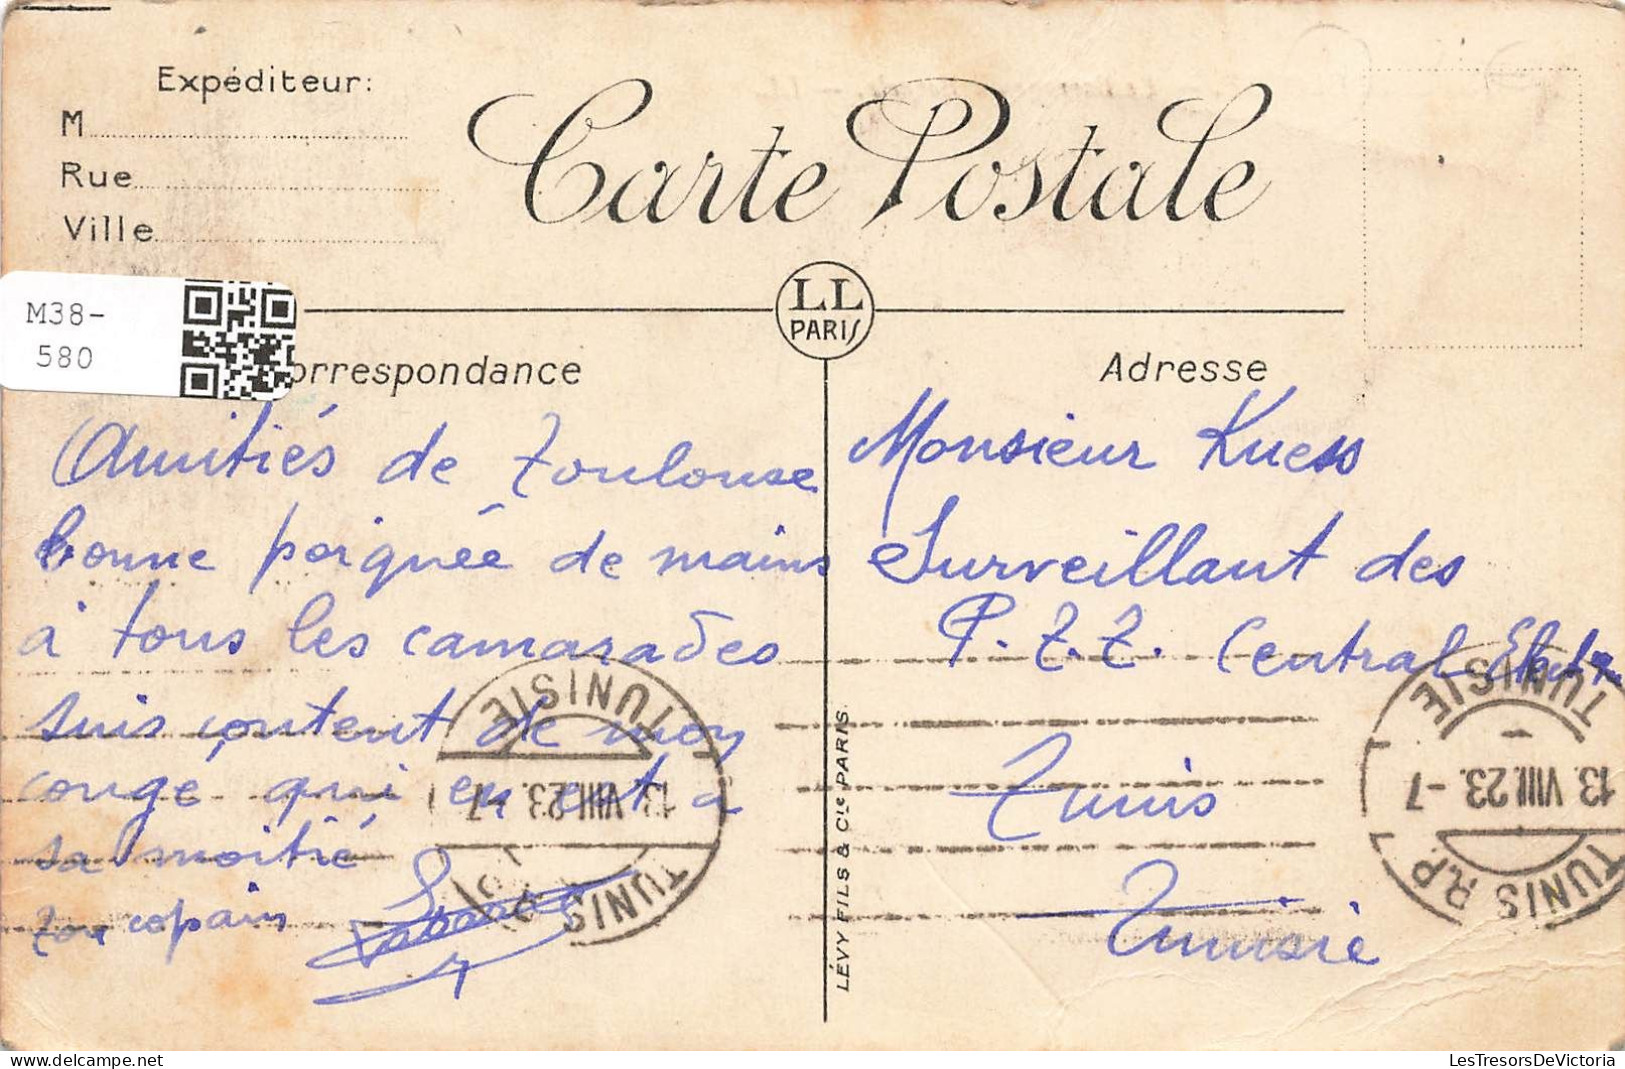 Expéditeur:
M
Rue
Ville
Carte Postale
M38-
580
LL
PARIS
orrespondance
Adresse
Amitiés de Toulouse
bonne poignée de mains
à tous les camarades
suis content de mon
congé qui en est a
sa moitié
ton copain
Monsieur Kuess
Surveillant des
P.T.T. Central
Tunis
Tunisie
LÉVY FILS & Cie PARIS
TUNIS R.P.
13.VIII.23.-7
TUNISIE
TUNIS
13.VIII.23.-7
TUNISIE
LesTresorsDeVictoria
delcampe.net